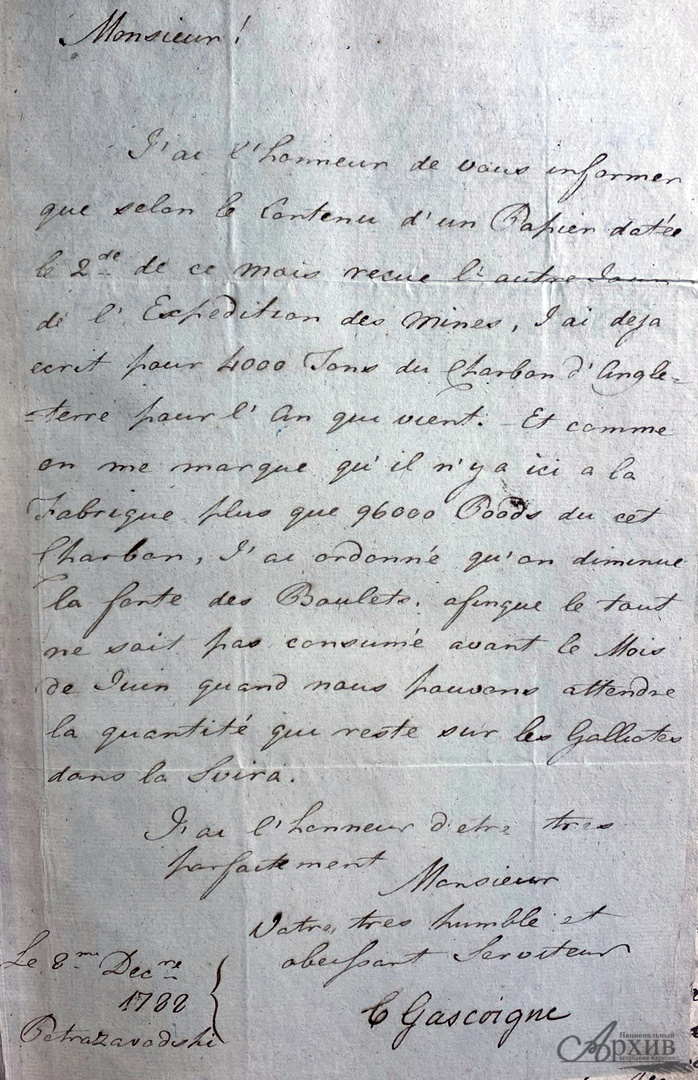 Monsieur!
J'ai l'honneur de vous informer
que selon le Contenu d'un Papier datée
le 2de de ce mois reçue l'autre Jour
de l'Expedition des Mines, J'ai deja
ecrit pour 4000 Tons du Charbon d'Angle=
=terre pour l'An qui vient. - Et comme
on me marque qu'il n'y a ici a la
Fabrique plus que 96000 Poods du cet
Charbon, J'ai ordonné qu'on diminue
la fonte des Boulets, afinque le tout
ne soit pas consumé avant le Mois
de Juin quand nous pouvons attendre
la quantité qui reste sur les Galliotes
dans la Svira.
J'ai l'honneur d'etre tres
parfaitement
Monsieur
Votre, tres humble et
obeissant Serviteur
Le 8me Decre
1788
Petrazavodski
C Gascoigne
Национальный
Архив